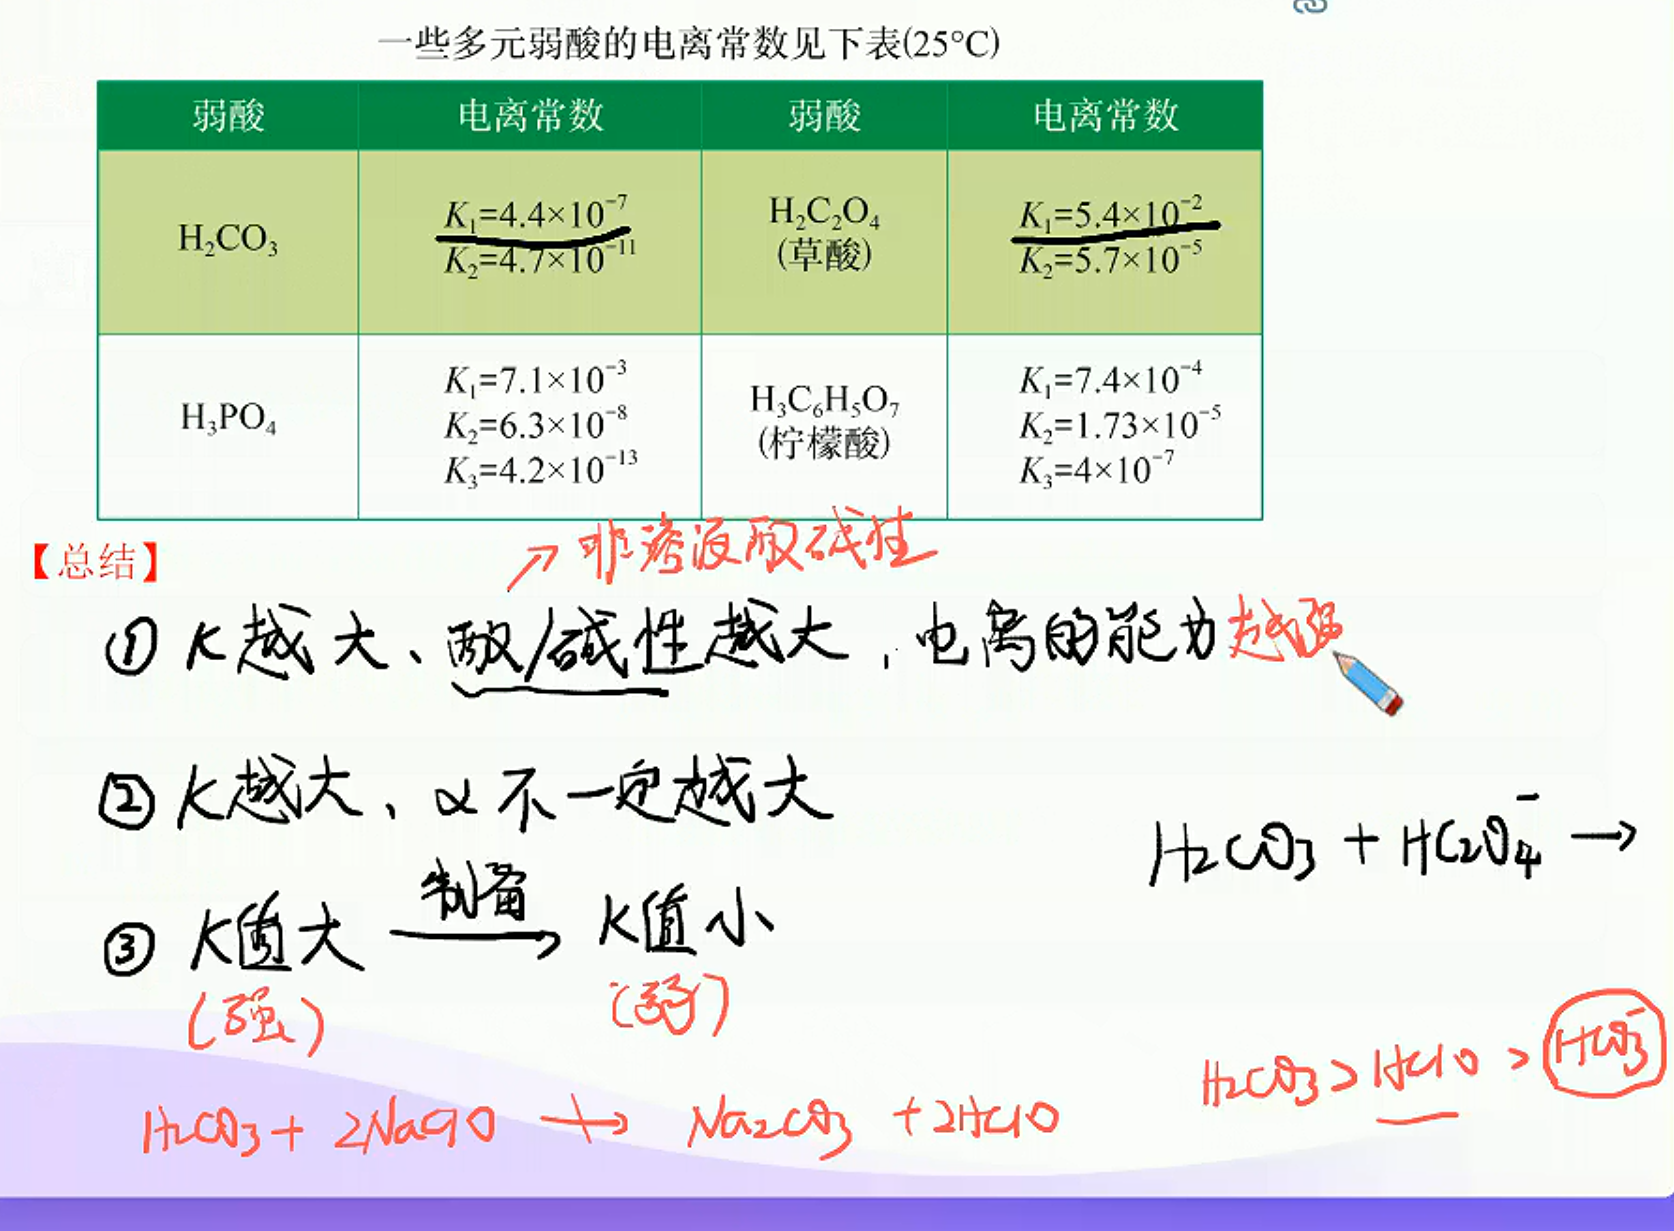 一些多元弱酸的电离常数见下表(25°C)
弱酸 电离常数 弱酸 电离常数
H₂CO₃ K₁=4.4×10⁻⁷ K₂=4.7×10⁻¹¹ H₂C₂O₄ (草酸) K₁=5.4×10⁻² K₂=5.7×10⁻⁵
H₃PO₄ K₁=7.1×10⁻³ K₂=6.3×10⁻⁸ K₃=4.2×10⁻¹³ H₃C₆H₅O₇ (柠檬酸) K₁=7.4×10⁻⁴ K₂=1.73×10⁻⁵ K₃=4×10⁻⁷
【总结】
↗非溶液酸碱性
① K越大、酸/碱性越大,电离的能力越强
② K越大、α不一定越大
H₂CO₃ + HC₂O₄⁻ →
制备
③ K值大 → K值小
(强) (弱)
H₂CO₃ > HClO > HCO₃⁻
H₂CO₃ + 2NaClO ↛ Na₂CO₃ + 2HClO